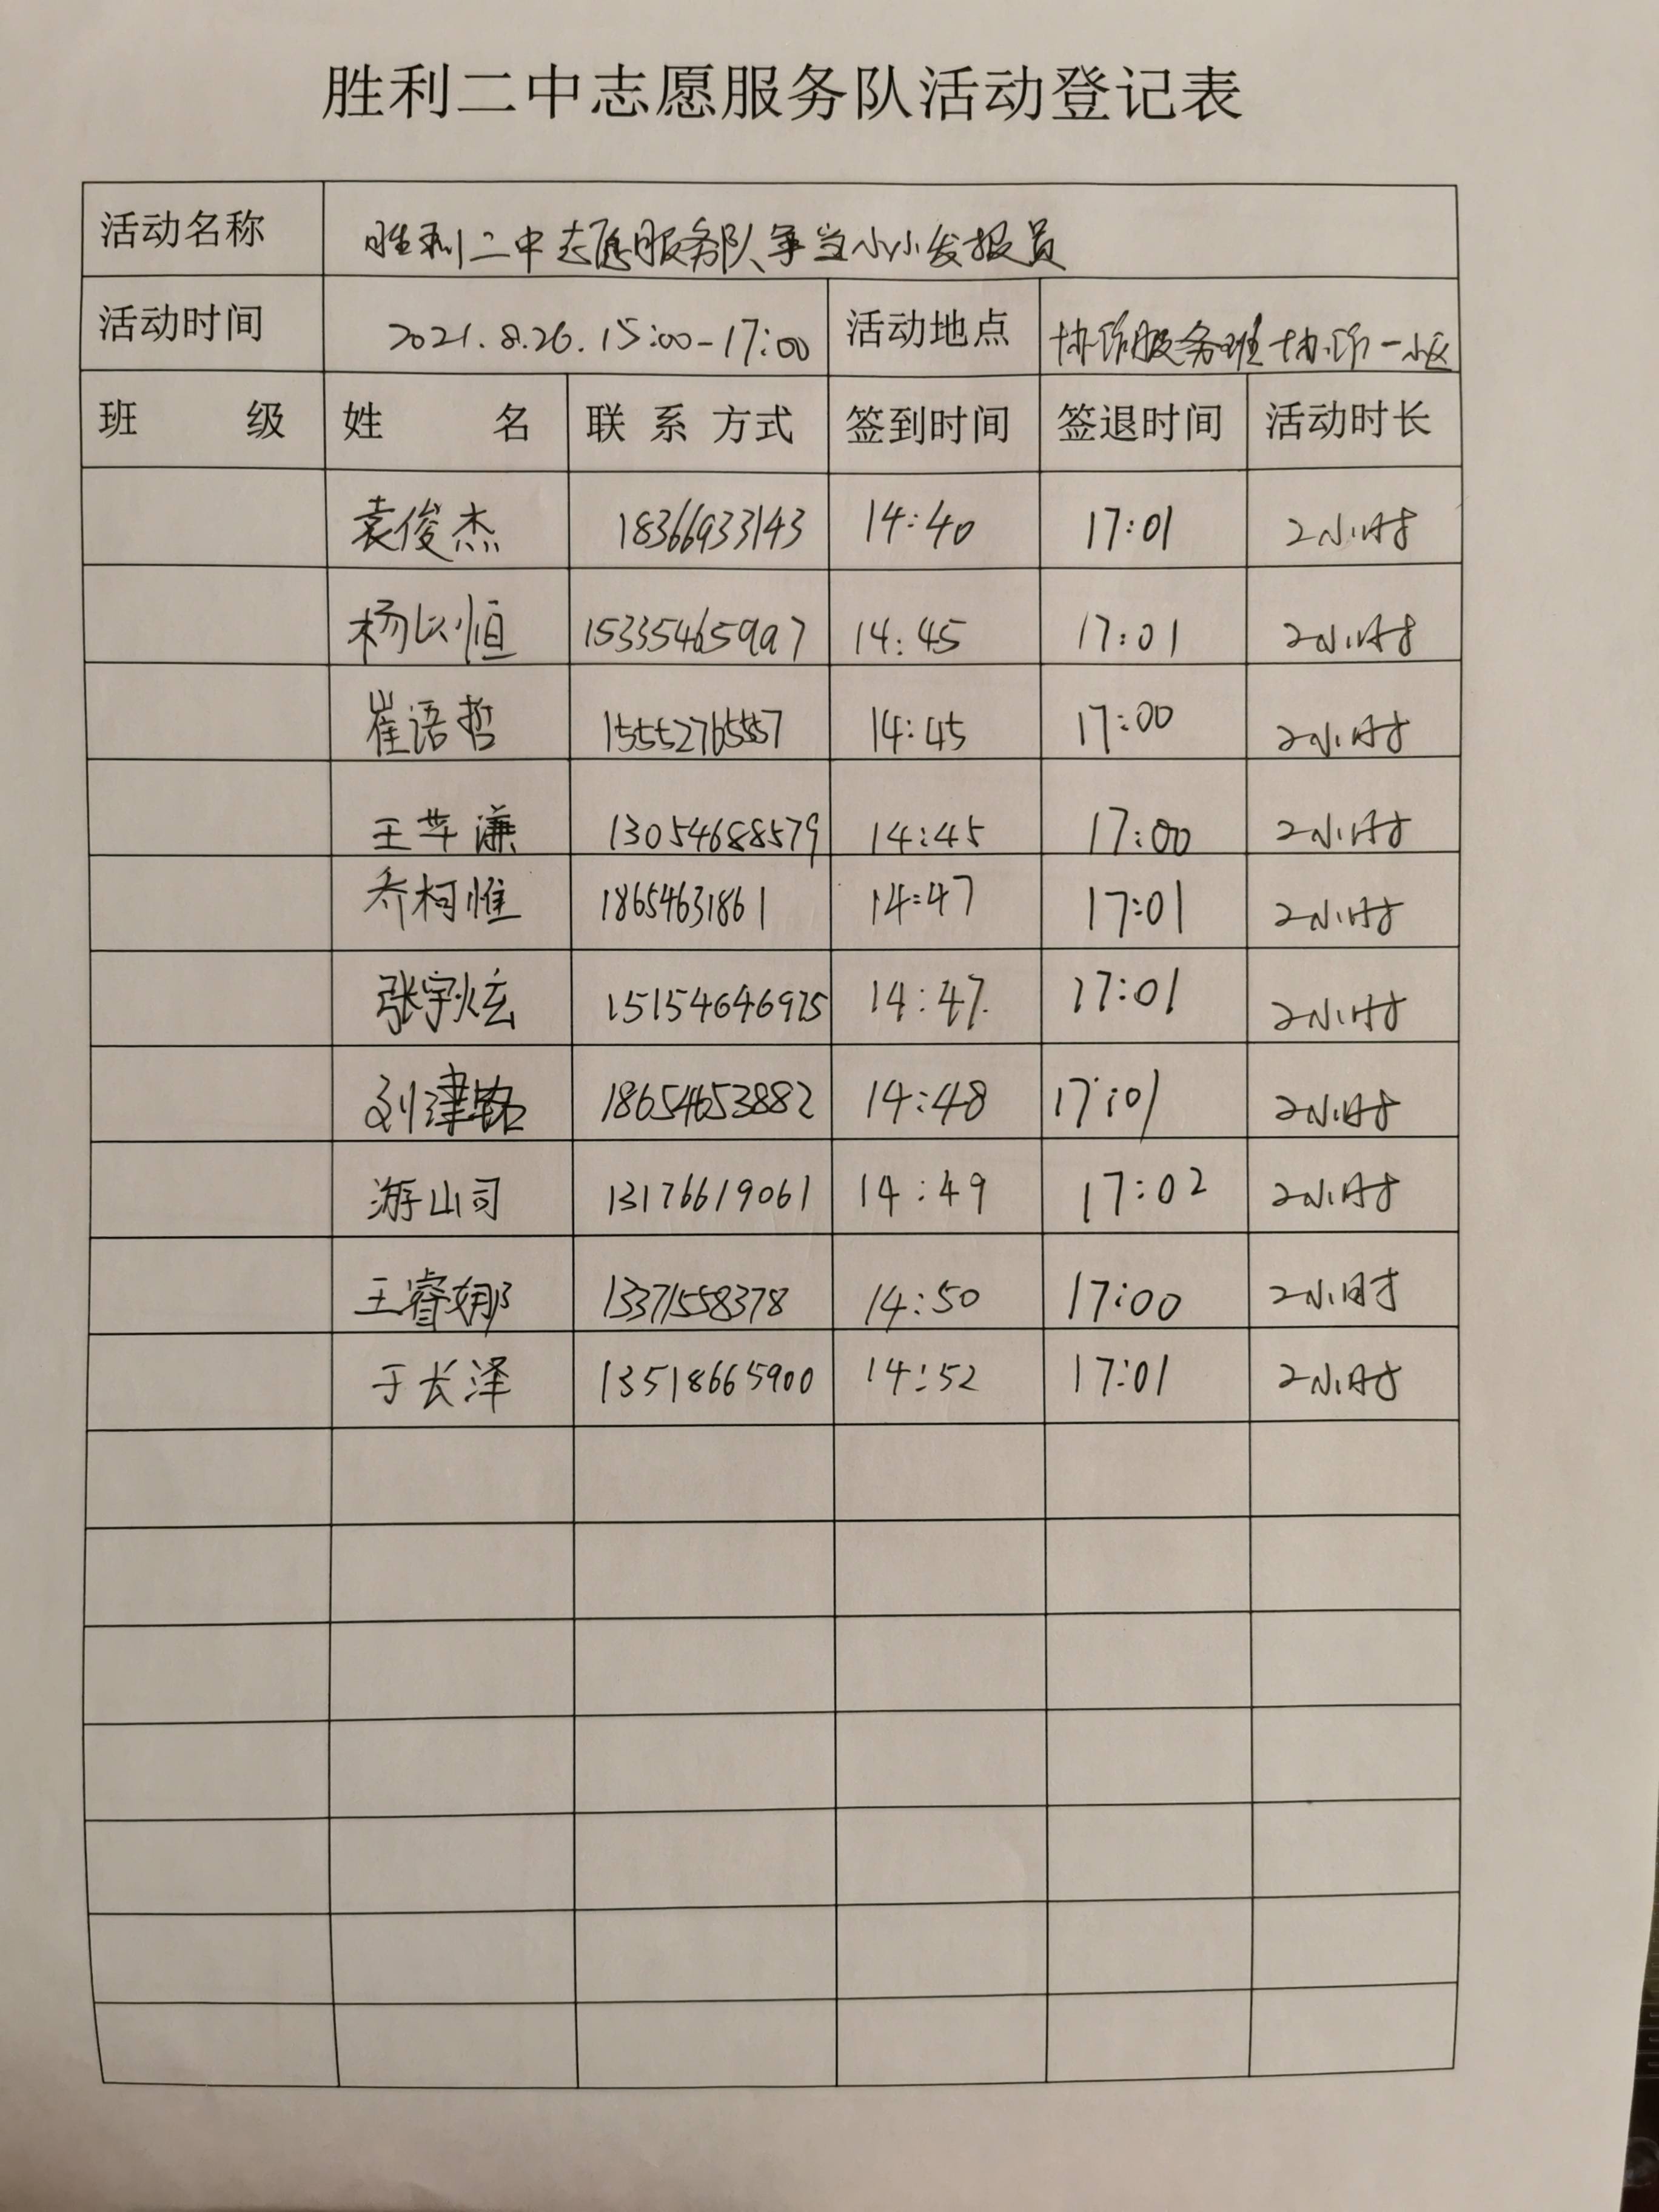 胜利二中志愿服务队活动登记表
活动名称 胜利二中志愿服务队争当小小发报员
活动时间 2021.8.26.15:00-17:00 活动地点 协作服务班协作一小区
班 级 姓 名 联 系 方式 签到时间 签退时间 活动时长
袁俊杰 18366933143 14:40 17:01 2小时
杨以恒 15335465997 14:45 17:01 2小时
崔语哲 15552765557 14:45 17:00 2小时
王 谦 13054688579 14:45 17:00 2小时
乔柯惟 18654631861 14:47 17:01 2小时
张宇炫 15154646925 14:47. 17:01 2小时
刘津铭 18654653882 14:48 17:01 2小时
游山司 13176619061 14:49 17:02 2小时
王睿娜 13371558378 14:50 17:00 2小时
于长泽 13518665900 14:52 17:01 2小时